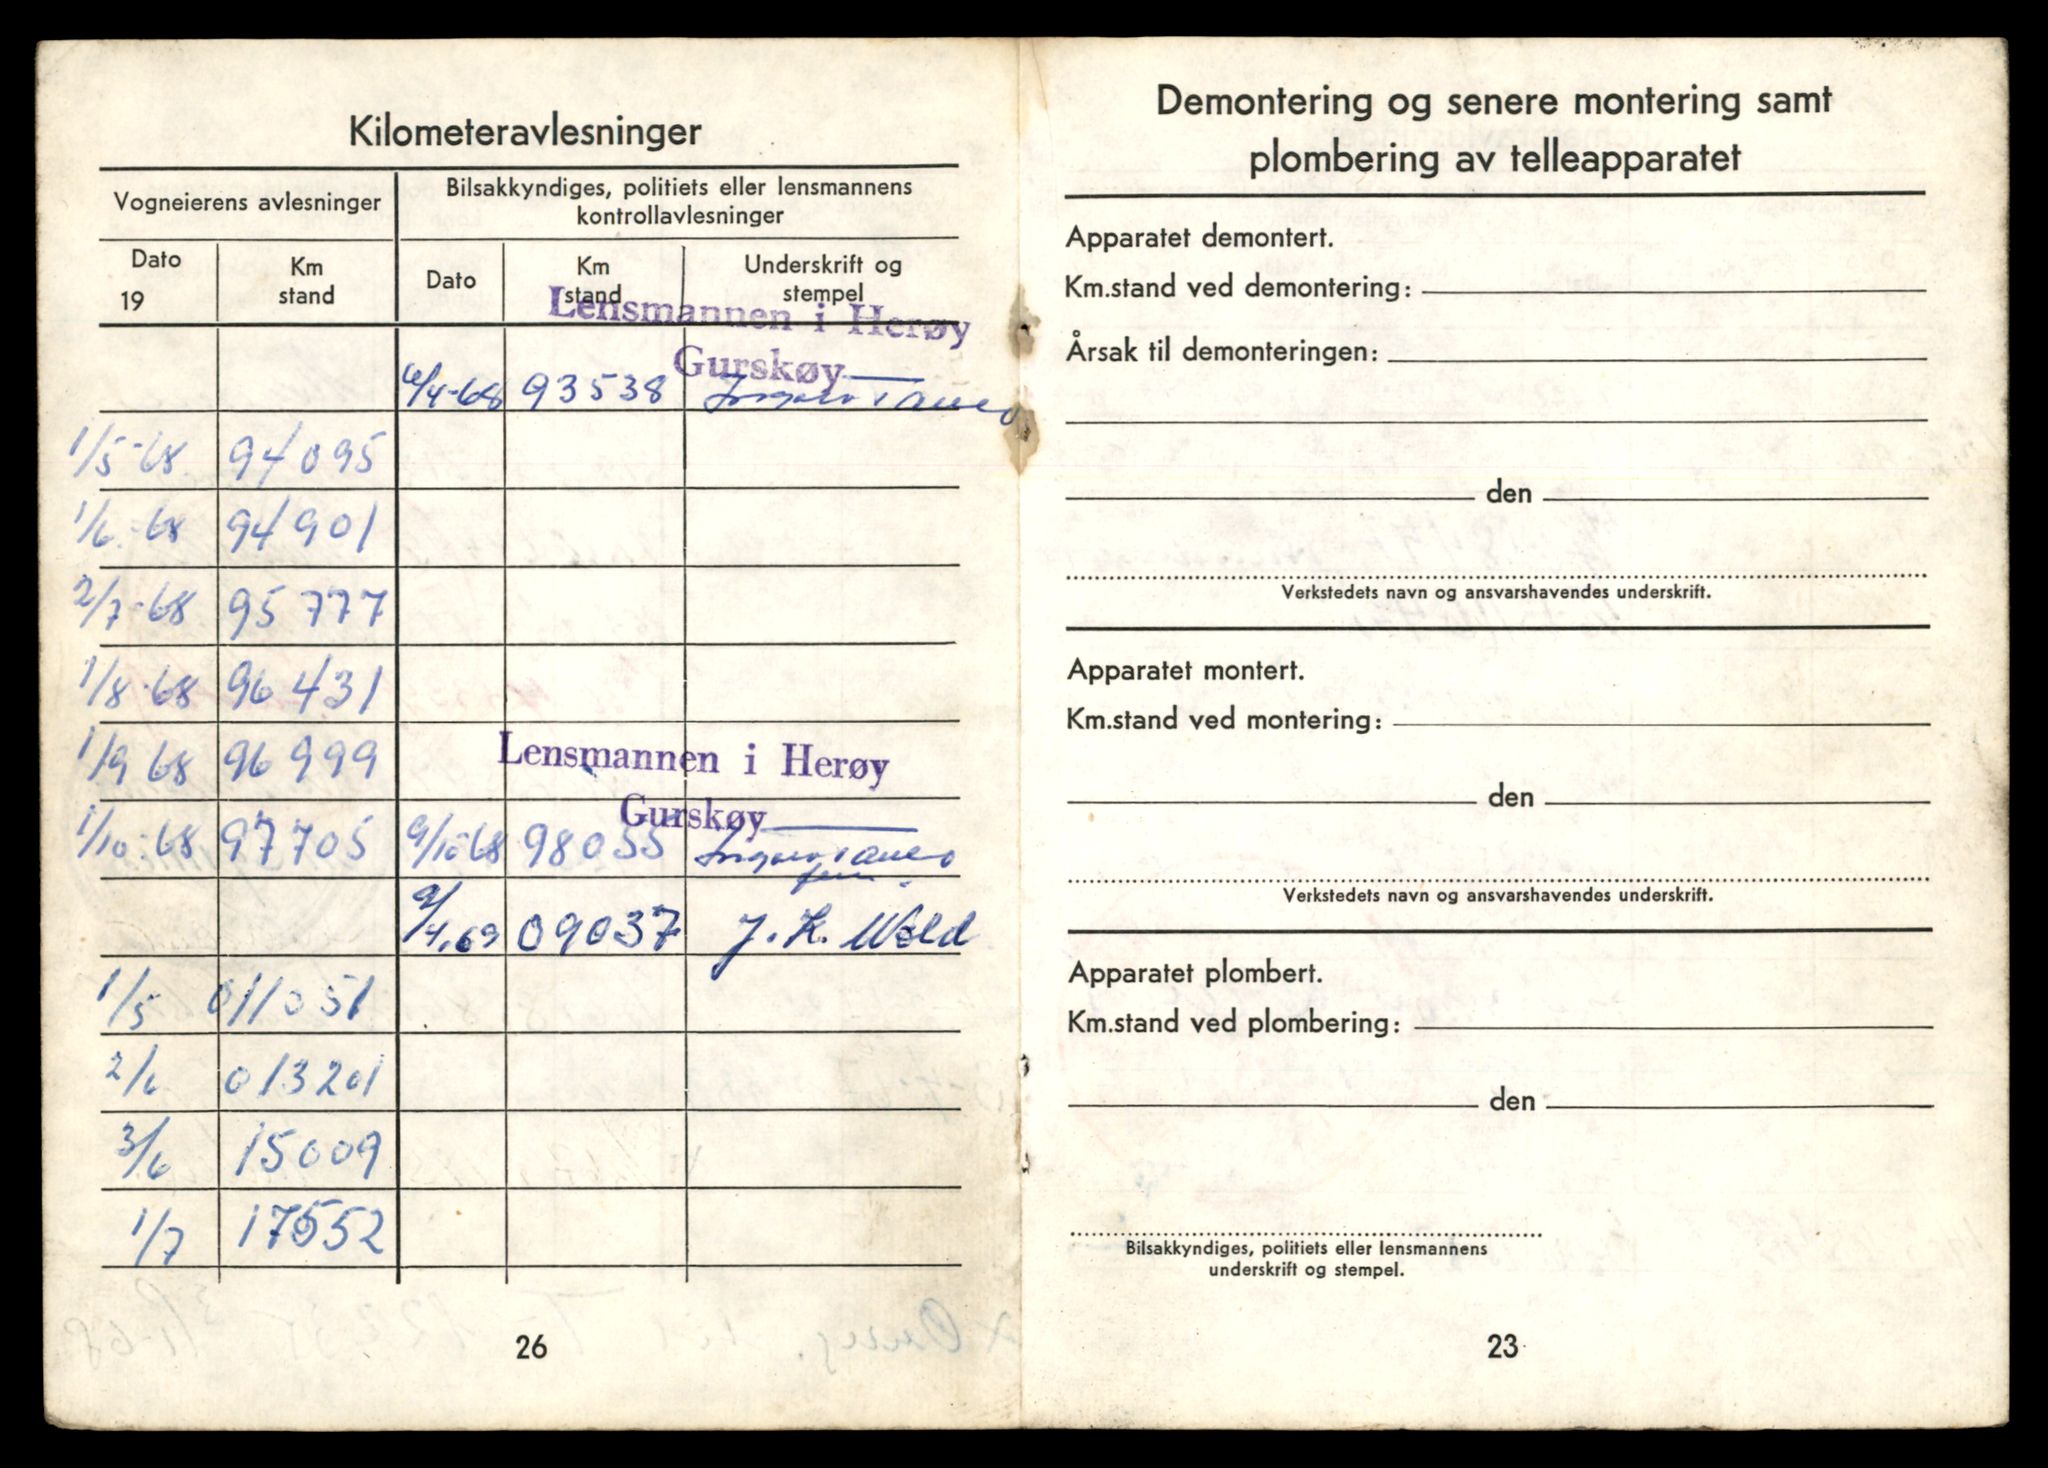 Kilometeravlesninger
Vogneierens avlesninger
Bilsakkyndiges, politiets eller lensmannens
kontrollavlesninger
Dato
19
Km
stand
Dato
Km
stand
Underskrift og
stempel
Lensmannen i Herøy
Gurskøy
6/4-68 93538
1/5-68 94095
1/6-68 94901
2/7-68 95777
1/8-68 96431
1/9 68 96999
Lensmannen i Herøy
Gurskøy
1/10-68 97705 9/10-68 98055
9/4.69 09037 J. K. Wold
1/5 011051
2/6 013201
3/6 15009
1/7 17552
26
Demontering og senere montering samt
plombering av telleapparatet
Apparatet demontert.
Km.stand ved demontering:
Årsak til demonteringen:
den
Verkstedets navn og ansvarshavendes underskrift.
Apparatet montert.
Km.stand ved montering:
den
Verkstedets navn og ansvarshavendes underskrift.
Apparatet plombert.
Km.stand ved plombering:
den
Bilsakkyndiges, politiets eller lensmannens
underskrift og stempel.
23